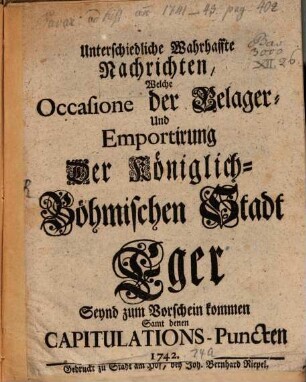 Unterschiedliche Wahrhaffte
Nachrichten,
Welche
Occasione der Belager-
Und
Emportirung
Der Königlich-
Böhmischen Stadt
Eger
Seynd zum Vorschein kommen
Samt denen
CAPITULATIONS-Puncten
1742.
Gedruckt zu Stadt am Hof, bey Joh. Bernhard Riepel,